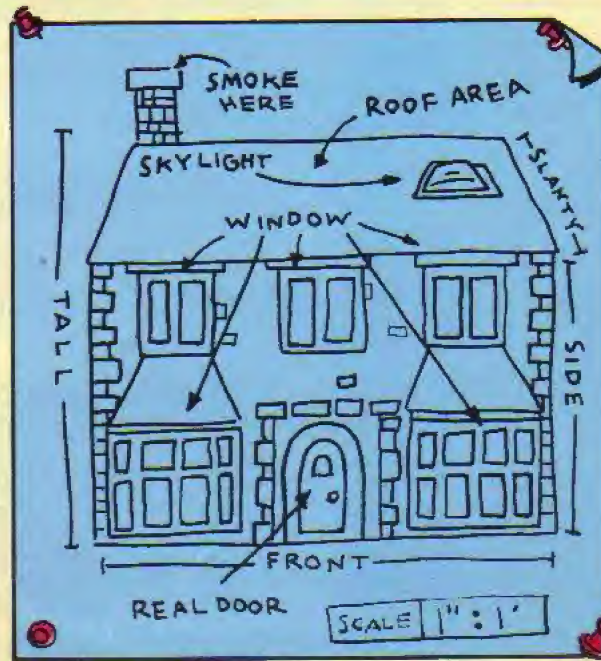 SMOKE
HERE
ROOF AREA
SKYLIGHT
SLANTY
WINDOW
TALL
SIDE
FRONT
REAL DOOR
SCALE 1" : 1'